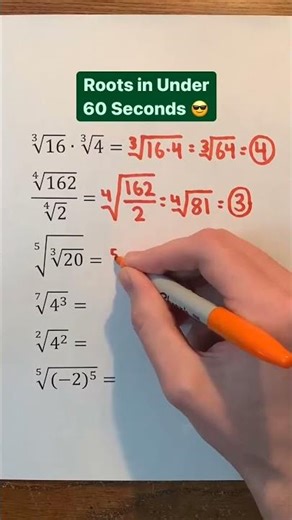 Roots in Under
60 Seconds 😎
∛16 · ∛4 = ∛16·4 = ∛64 = 4
∜162 / ∜2 = ∜(162/2) = ∜81 = 3
⁵√∛20 = ⁵
⁷√4³ =
²√4² =
⁵√(−2)⁵ =